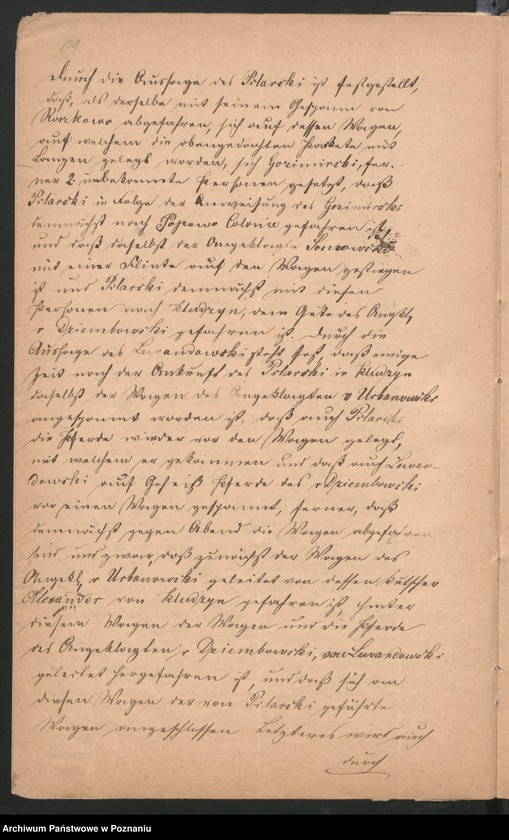 Durch die Aussage des Pilarski ist festgestellt,
daß, als derselbe mit seinem Gespann von
Roszkowo abgefahren, sich auf dessen Wagen,
auf welchem die obengedachten Packete mit
Lanzen gelegt worden, sich Gozimirski, fer-
ner 2 unbekannte Personen gesetzt, daß
Pilarski in Folge der Anweisung des Gozimirski
demnächst nach Popowo Colonie gefahren ist,
und daß daselbst der Angeklagte
mit einer Flinte auf den Wagen gestiegen
ist und Pilarski demnächst mit diesen
Personen nach Kludzyn, dem Gute des Angkl.
v Dziembowski gefahren ist. Durch die
Aussage des Lewandowski steht fest, daß einige
Zeit nach der Ankunft des Pilarski in Kludzyn
daselbst der Wagen des Angeklagten v Urbanowski
angespannt worden ist, daß auch Pilarski
die Pferde wieder vor den Wagen gelegt,
mit welchem er gekommen und daß auch Lewan-
dowski auf Geheiß Pferde des v Dziembowski
vor einen Wagen gespannt, ferner, daß
demnächst gegen Abend die Wagen abgefahren
sind und zwar, daß zunächst der Wagen des
Angekl. v Urbanowski geleitet von dessen Kutscher
Alexander von Kludzyn gefahren ist hinter
diesem Wagen der Wagen und die Pferde
des Angeklagten v Dziembowski, von Lewandowski
geleitet hergefahren ist, und daß sich an
diesen Wagen der von Pilarski geführte
Wagen angeschlossen Letzteres wird auch
durch
Archiwum Państwowe w Poznaniu